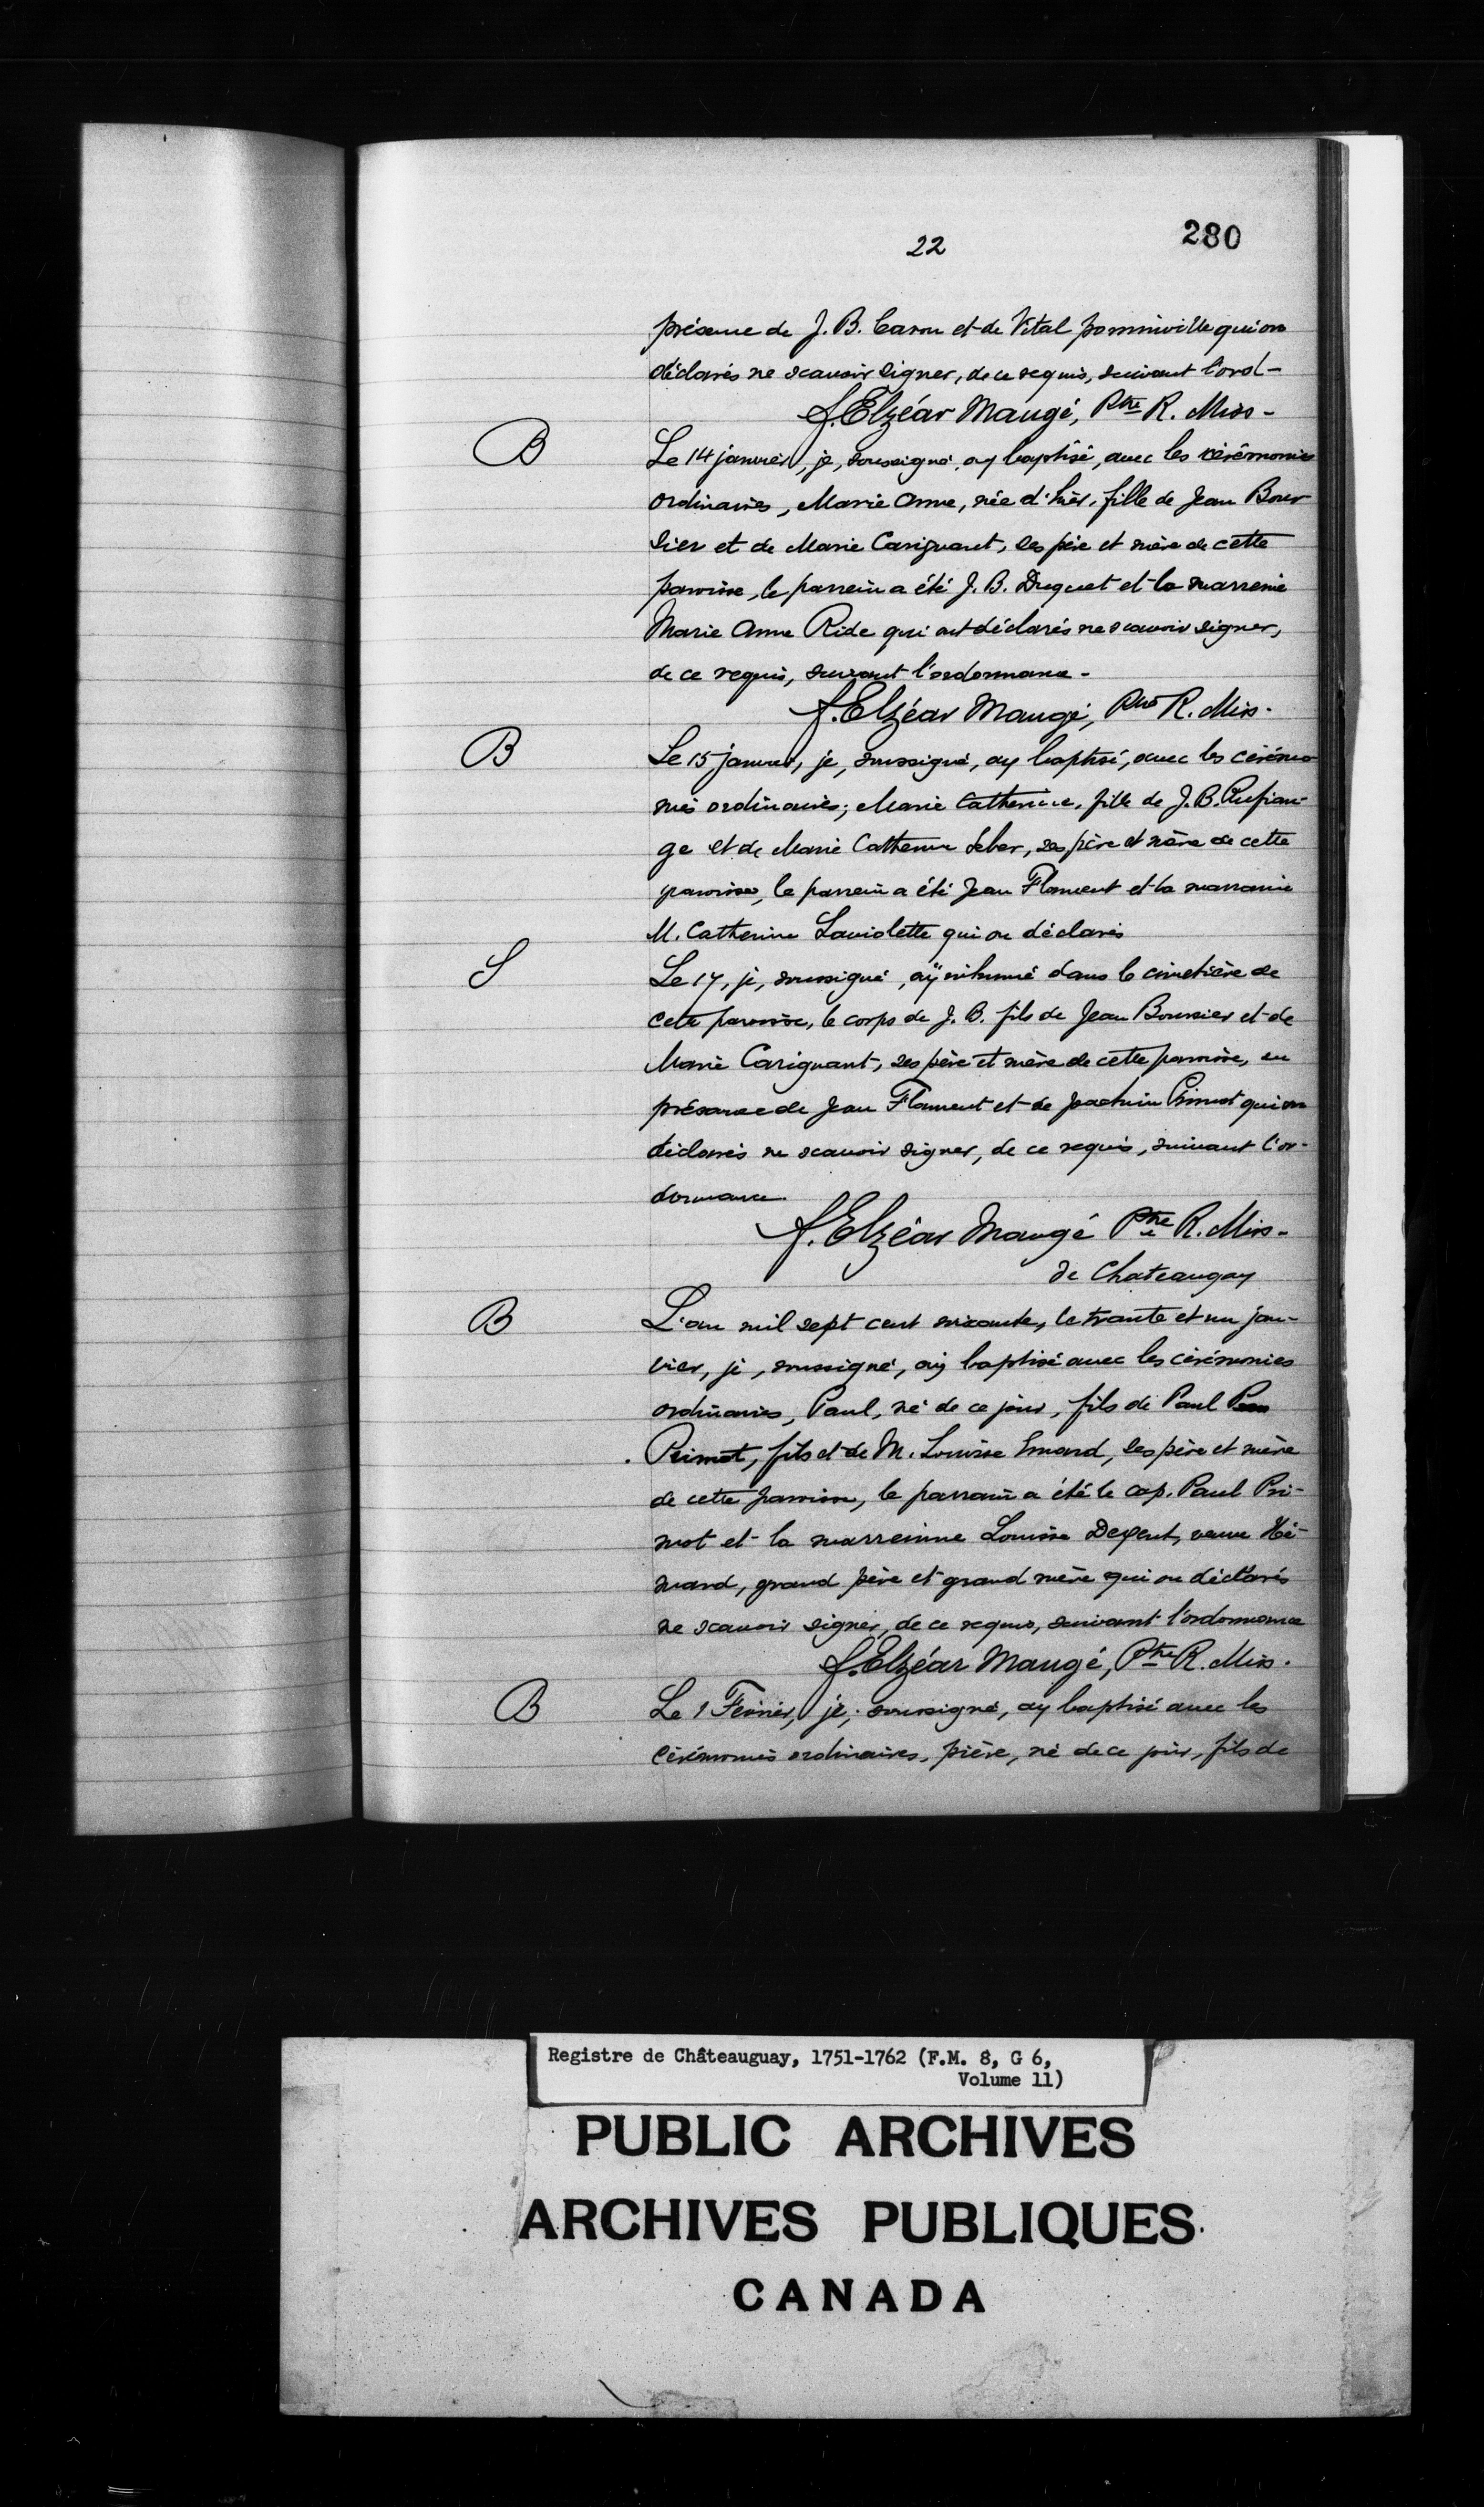 22
280
présence de J. B. Caron et de Vital pominville qui on
déclarés ne scavoir signer, de ce requis, suivant l'ord-
f. Elzéar Maugé, Ptre R. Miss-
B
Le 14 janvier, je, soussigné, ay baptisé, avec les cérémonies
ordinaires, Marie Anne, née d'hièr, fille de Jean Bour
sier et de Marie Carignant, ses père et mère de cette
paroisse, le parrein a été J. B. Duquet et la marreine
Marie Anne Ride qui ont déclarés ne scavoir signer,
de ce requis, suivant l'ordonnance-
f. Elzéar Maugé, Ptre R. Miss-
B
Le 15 janvier, je, soussigné, ay baptisé, avec les cérémo
nies ordinaires, Marie Catherine, fille de J. B. Rufian-
ge et de Marie Catherine Leber, ses père et mère de cette
paroisse, le parrein a été Jean Flament et la marraine
M. Catherine Laviolette qui on déclarés
S
Le 17, je, soussigné, aÿ inhumé dans le cimetière de
cette paroisse, le corps de J. B. fils de Jean Boursier et de
Marie Carignant, ses père et mère de cette paroisse, en
présence de Jean Flament et de Joachim Primot qui on
déclarés ne scavoir signer, de ce requis, suivant l'or-
donnance
f. Elzéar Maugé Ptre R. Miss-
de Chateaugay
B
L'an mil sept cent soixante, le trante et un jan-
vier, je, soussigné, aÿ baptisé avec les cérémonies
ordinaires, Paul, né de ce jour, fils de Paul
Primot, fils et de M. Louise Emard, ses père et mère
de cette paroisse, le parrain a été le cap. Paul Pri-
mot et la marreinne Louise Depent, veuve Hé-
mard, grand père et grand mère qui on déclarés
ne scavoir signer, de ce requis, suivant l'ordonnance
f. Elzéar Maugé, Ptre R. Miss.
B
Le 1 Février, je, soussigné, ay baptisé avec les
cérémonies ordinaires, pière, né de ce jour, fils de
Registre de Châteauguay, 1751-1762 (F.M. 8, G 6,
Volume 11)
PUBLIC ARCHIVES
ARCHIVES PUBLIQUES
CANADA